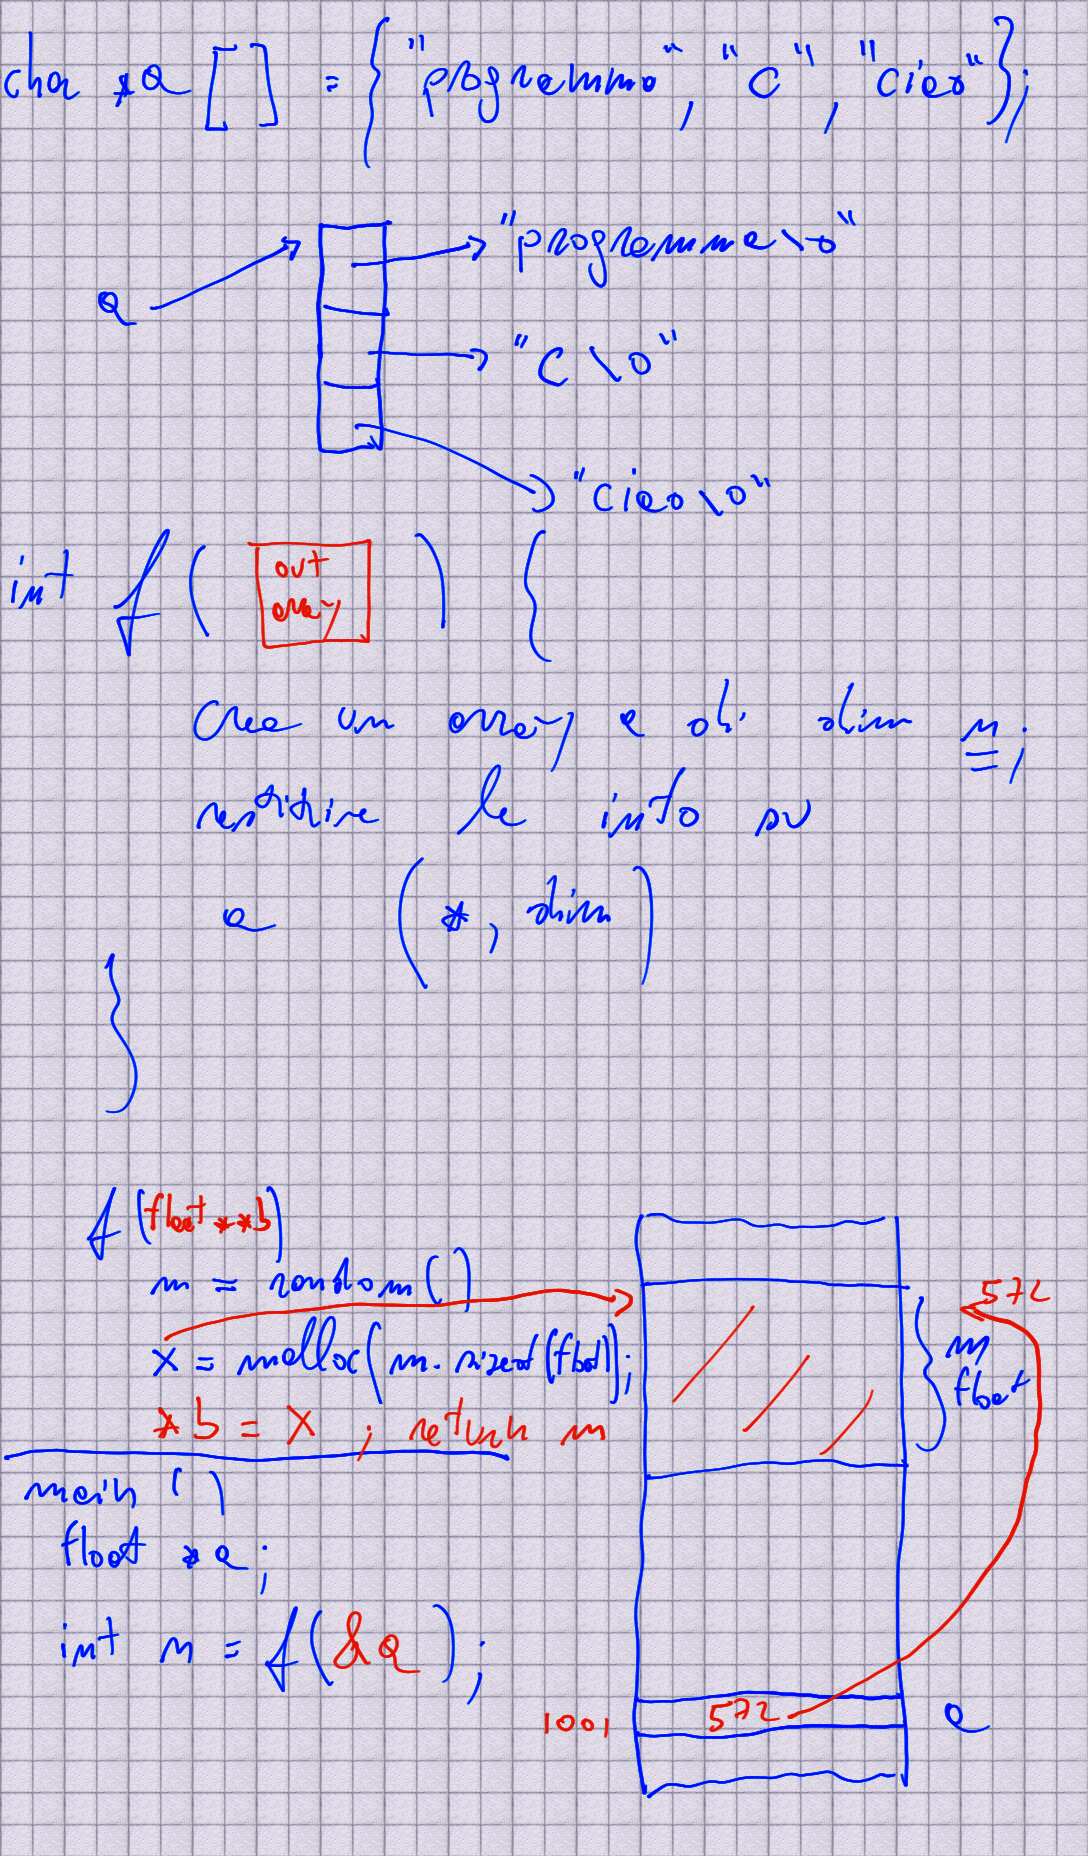 char *a [] = { "programma", "C", "ciao" };
"programma\0"
a
"C\0"
"ciao\0"
int f ( out array ) {
Crea un array a di dim n;
restituire le info su
a ( *, dim )
}
f (float **b)
n = random ()
572
x = malloc (n. sizeof (float));
n float
*b = x ; return n
main ()
float *a;
int n = f (&a);
1001 572 a